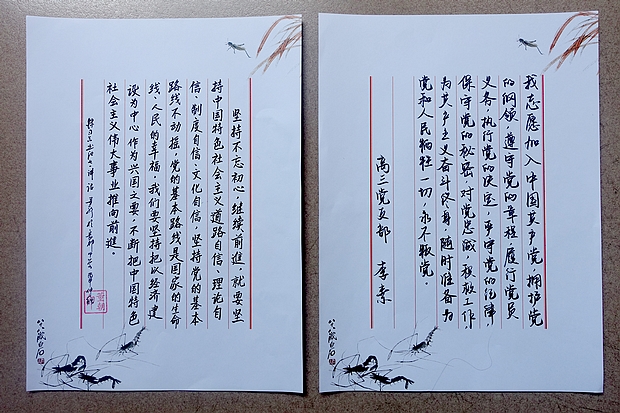 我志愿加入中国共产党，拥护党
的纲领，遵守党的章程，履行党员
义务，执行党的决定，严守党的纪律，
保守党的秘密，对党忠诚，积极工作
为共产主义奋斗终身，随时准备为
党和人民牺牲一切，永不叛党。
高三党支部 李素
坚持不忘初心、继续前进，就要坚
持中国特色社会主义道路自信、理论自
信、制度自信、文化自信，坚持党的基本
路线不动摇。党的基本路线是国家的生命
线、人民的幸福，我们要坚持把以经济建
设为中心作为兴国之要，不断把中国特色
社会主义伟大事业推向前进。